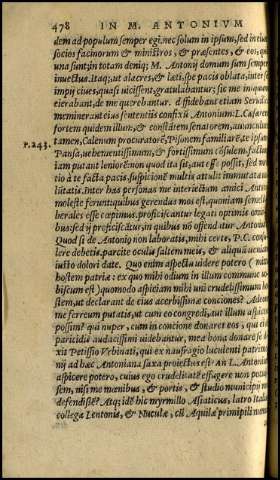 478 IN M. ANTONIUM
dem ad populum semper egi, nec solum in ipsum, sed in eius
socios facinorum & ministros, & præsentes, & eos, qui
una sunt, in totam deniq; M. Antonij domum sum semper
inuectus. Itaq; ut alacres, & læti, spe pacis oblata, inter se
impij ciues, quasi uicissent, gratulabantur; sic me iniquum
eierabant, de me querebantur. diffidebant etiam Seruilio
meminerant eius sententijs confixũ Antonium. L. Cæsarem
fortem quidem illum, & constãtem senatorem, auunculum
P. 243. tamen, Calenum procuratorẽ, Pisonem familiarẽ, te ipsum
Pansa, uehementissimum, & fortissimum consulem, factum
iam putant leniorẽ. non quod ita sit, aut esse possit, sed men
tio à te facta pacis, suspicionẽ multis attulit immutatæ uo
lũtatis. Inter has personas me interiectum amici Antonij
moleste ferunt: quibus gerendus mos est, quoniam semel li
berales esse cœpimus. proficiscantur legati optimis omini
bus, sed ij proficiscãtur, in quibus nõ offendatur Antonius.
Quod si de Antonio non laboratis, mihi certe, P. C. consu
lere debetis. parcite oculis saltem meis, & aliquã ueniam
iusto dolori date. Quo enim aspectu uidere potero (mitto
hostem patriæ: ex quo mihi odium in illum commune uo
biscum est) quomodo aspiciam mihi uni crudelissimum ho
stem, ut declarant de eius acerbissimæ conciones? Adeon'
me ferreum putatis, ut cum eo congredi, aut illum aspicere
possim? qui nuper, cum in concione donaret eos, qui ei de
parricidis audacissimi uidebantur, mea bona donare se di
xit Petissio Vrbinati, qui ex naufragio luculenti patrimo
nij ad hæc Antoniana saxa proiectus est. An L. Antonium
aspicere potero, cuius ego crudelitatẽ effugere non potuis
sem, nisi me mœnibus, & portis, & studio municipij mei
defendissem? Atq; idẽ hic myrmillo Asiaticus, latro Italiæ,
collega Lentonis, & Nuculæ, cũ Aquilæ primipili nummos